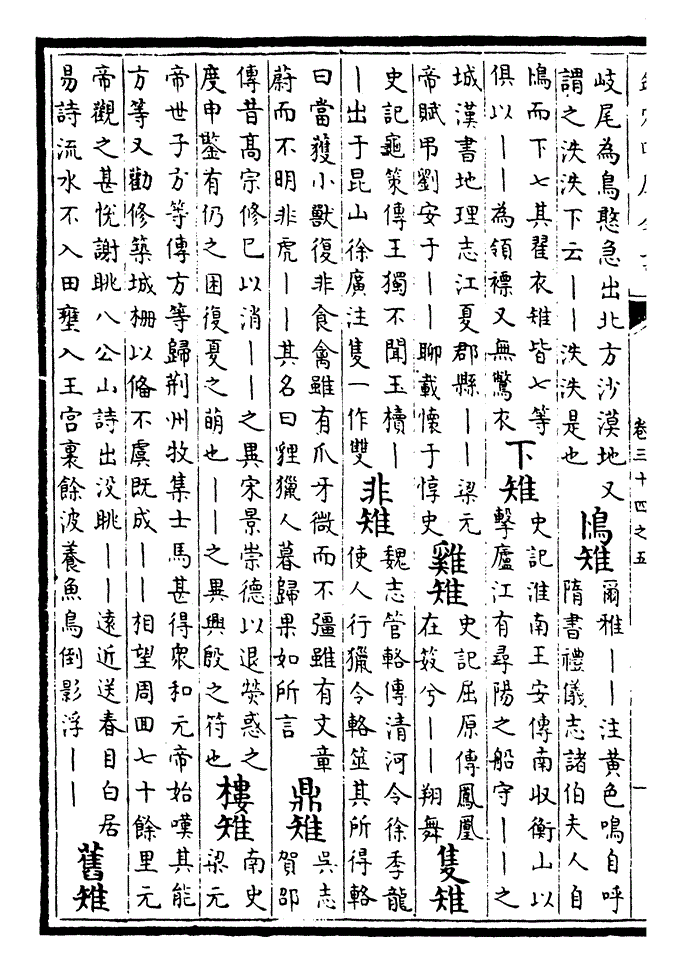 卷三十四之五
一
岐尾為鳥憨急出北方沙漠地又
謂之泆泆下云||泆泆是也
鳪雉
爾雅||注黄色鳴自呼
隋書禮儀志諸伯夫人自
鳪而下七其翟衣雉皆七等
俱以||為領褾又無鷩衣
下雉
史記淮南王安傳南收衡山以
擊廬江有尋陽之船守||之
城漢書地理志江夏郡縣||梁元
帝賦弔劉安于||聊載懷于惇史
雞雉
史記屈原傳鳳凰
在笯兮||翔舞
隻雉
史記龜策傳王獨不聞玉櫝|
|出于昆山徐廣注隻一作雙
非雉
魏志管輅傳清河令徐季龍
使人行獵令輅筮其所得輅
曰當獲小獸復非食禽雖有爪牙微而不彊雖有文章
蔚而不明非虎||其名曰狸獵人暮歸果如所言
鼎雉
吳志
賀邵
傳昔髙宗修已以消||之異宋景崇德以退熒惑之
度申鑒有仍之困復夏之萌也||之異興殷之符也
樓雉
南史
梁元
帝世子方等傳方等歸荆州牧集士馬甚得衆和元帝始嘆其能
方等又勸修築城柵以俻不虞既成||相望周回七十餘里元
帝觀之甚悅謝眺八公山詩出没眺||遠近送春目白居
易詩流水不入田壅入王宫裏餘波養魚鳥倒影浮||
舊雉